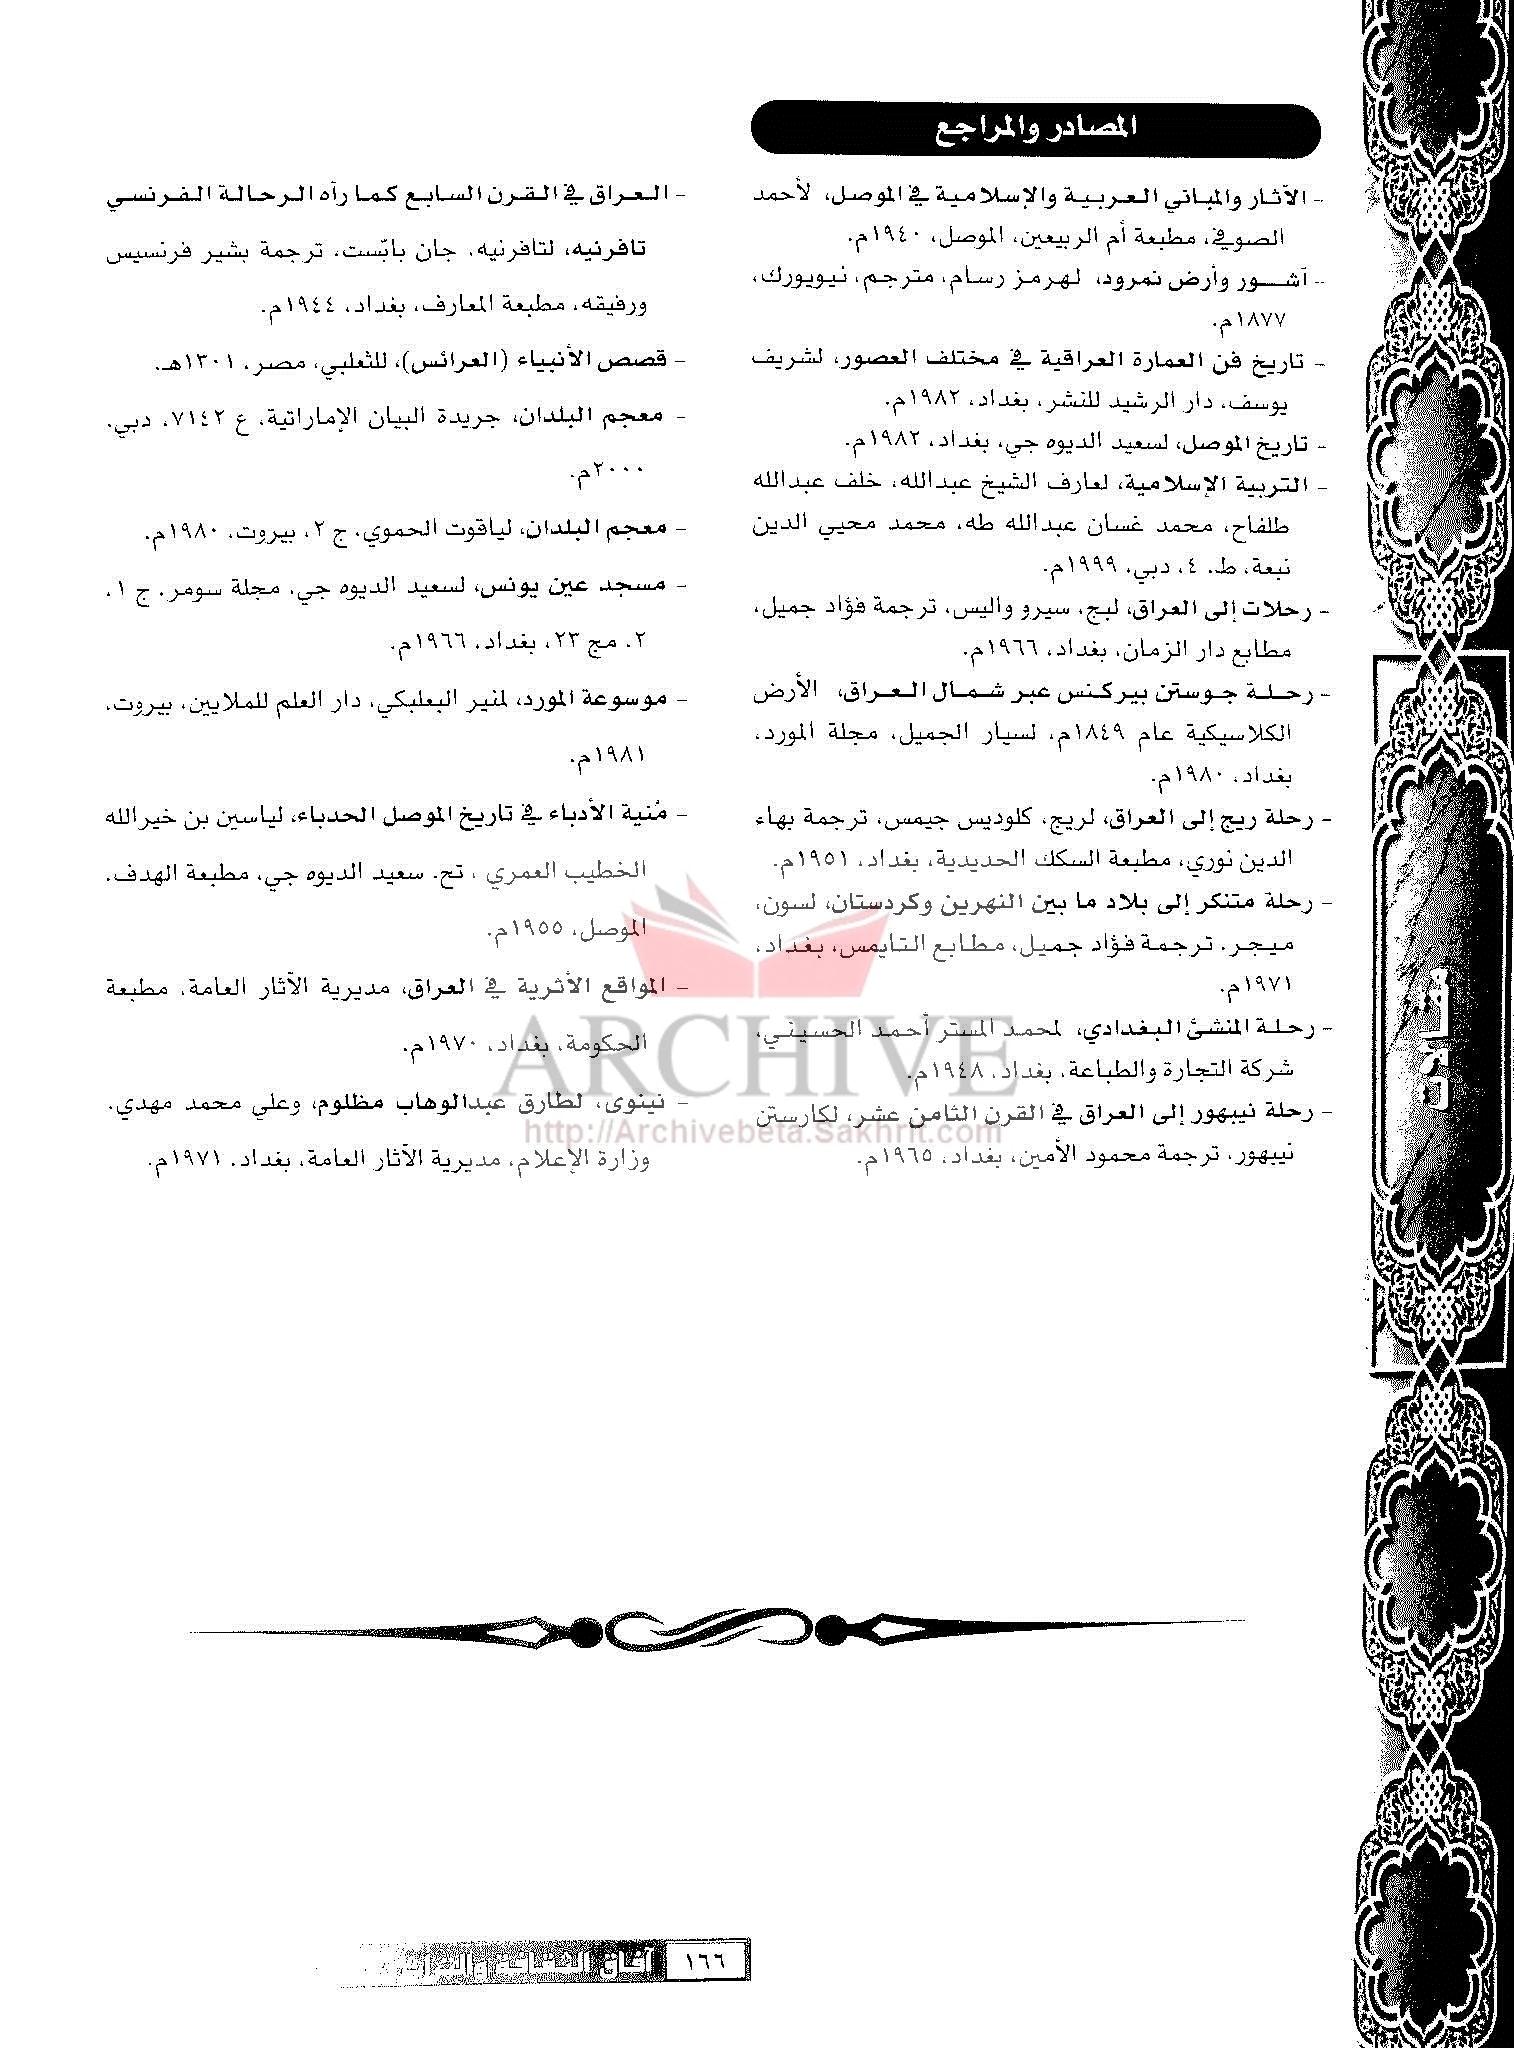 المصادر والمراجع
- الآثار والمباني العربية والإسلامية في الموصل، لأحمد
الصوفي، مطبعة أم الربيعين، الموصل، ١٩٤٠م.
- آشور وأرض نمرود، لهرمز رسام، مترجم، نيويورك،
١٨٧٧م.
- تاريخ فن العمارة العراقية في مختلف العصور، لشريف
يوسف، دار الرشيد للنشر، بغداد، ١٩٨٢م.
- تاريخ الموصل، لسعيد الديوه جي، بغداد، ١٩٨٢م.
- التربية الإسلامية، لعارف الشيخ عبدالله، خلف عبدالله
طلفاح، محمد غسان عبدالله طه، محمد محيي الدين
نبعة، ط. ٤، دبي، ١٩٩٩م.
- رحلات إلى العراق، لبج، سيرو واليس، ترجمة فؤاد جميل،
مطابع دار الزمان، بغداد، ١٩٦٦م.
- رحلة جوستن بيركنس عبر شمال العراق، الأرض
الكلاسيكية عام ١٨٤٩م، لسيار الجميل، مجلة المورد،
بغداد، ١٩٨٠م.
- رحلة ريج إلى العراق، لريج، كلوديس جيمس، ترجمة بهاء
الدين نوري، مطبعة السكك الحديدية، بغداد، ١٩٥١م.
- رحلة متنكر إلى بلاد ما بين النهرين وكردستان، لسون،
ميجر، ترجمة فؤاد جميل، مطابع التايمس، بغداد،
١٩٧١م.
- رحلة المنشئ البغدادي، لمحمد المستر أحمد الحسيني،
شركة التجارة والطباعة، بغداد، ١٩٤٨م.
- رحلة نيبهور إلى العراق في القرن الثامن عشر، لكارستن
نيبهور، ترجمة محمود الأمين، بغداد، ١٩٦٥م.
- العراق في القرن السابع كما رآه الرحالة الفرنسي
تافرنيه، لتافرنيه، جان باتيست، ترجمة بشير فرنسيس
ورفيقه، مطبعة المعارف، بغداد، ١٩٤٤م.
- قصص الأنبياء (العرائس)، للثعلبي، مصر، ١٣٠١هـ.
- معجم البلدان، جريدة البيان الإماراتية، ع ٧١٤٢، دبي،
٢٠٠٠م.
- معجم البلدان، لياقوت الحموي، ج ٢، بيروت، ١٩٨٠م.
- مسجد عين يونس، لسعيد الديوه جي، مجلة سومر، ج ١،
٢، مج ٢٣، بغداد، ١٩٦٦م.
- موسوعة المورد، لمنير البعلبكي، دار العلم للملايين، بيروت،
١٩٨١م.
- مُنية الأدباء في تاريخ الموصل الحدباء، لياسين بن خيرالله
الخطيب العمري ، تح. سعيد الديوه جي، مطبعة الهدف،
الموصل، ١٩٥٥م.
- المواقع الأثرية في العراق، مديرية الآثار العامة، مطبعة
الحكومة، بغداد، ١٩٧٠م.
- نينوى، لطارق عبدالوهاب مظلوم، وعلي محمد مهدي،
وزارة الإعلام، مديرية الآثار العامة، بغداد، ١٩٧١م.
ARCHIVE
http://Archivebeta.Sakhrit.com
مقالات
١٦٦
آفاق الثقافة والتراث